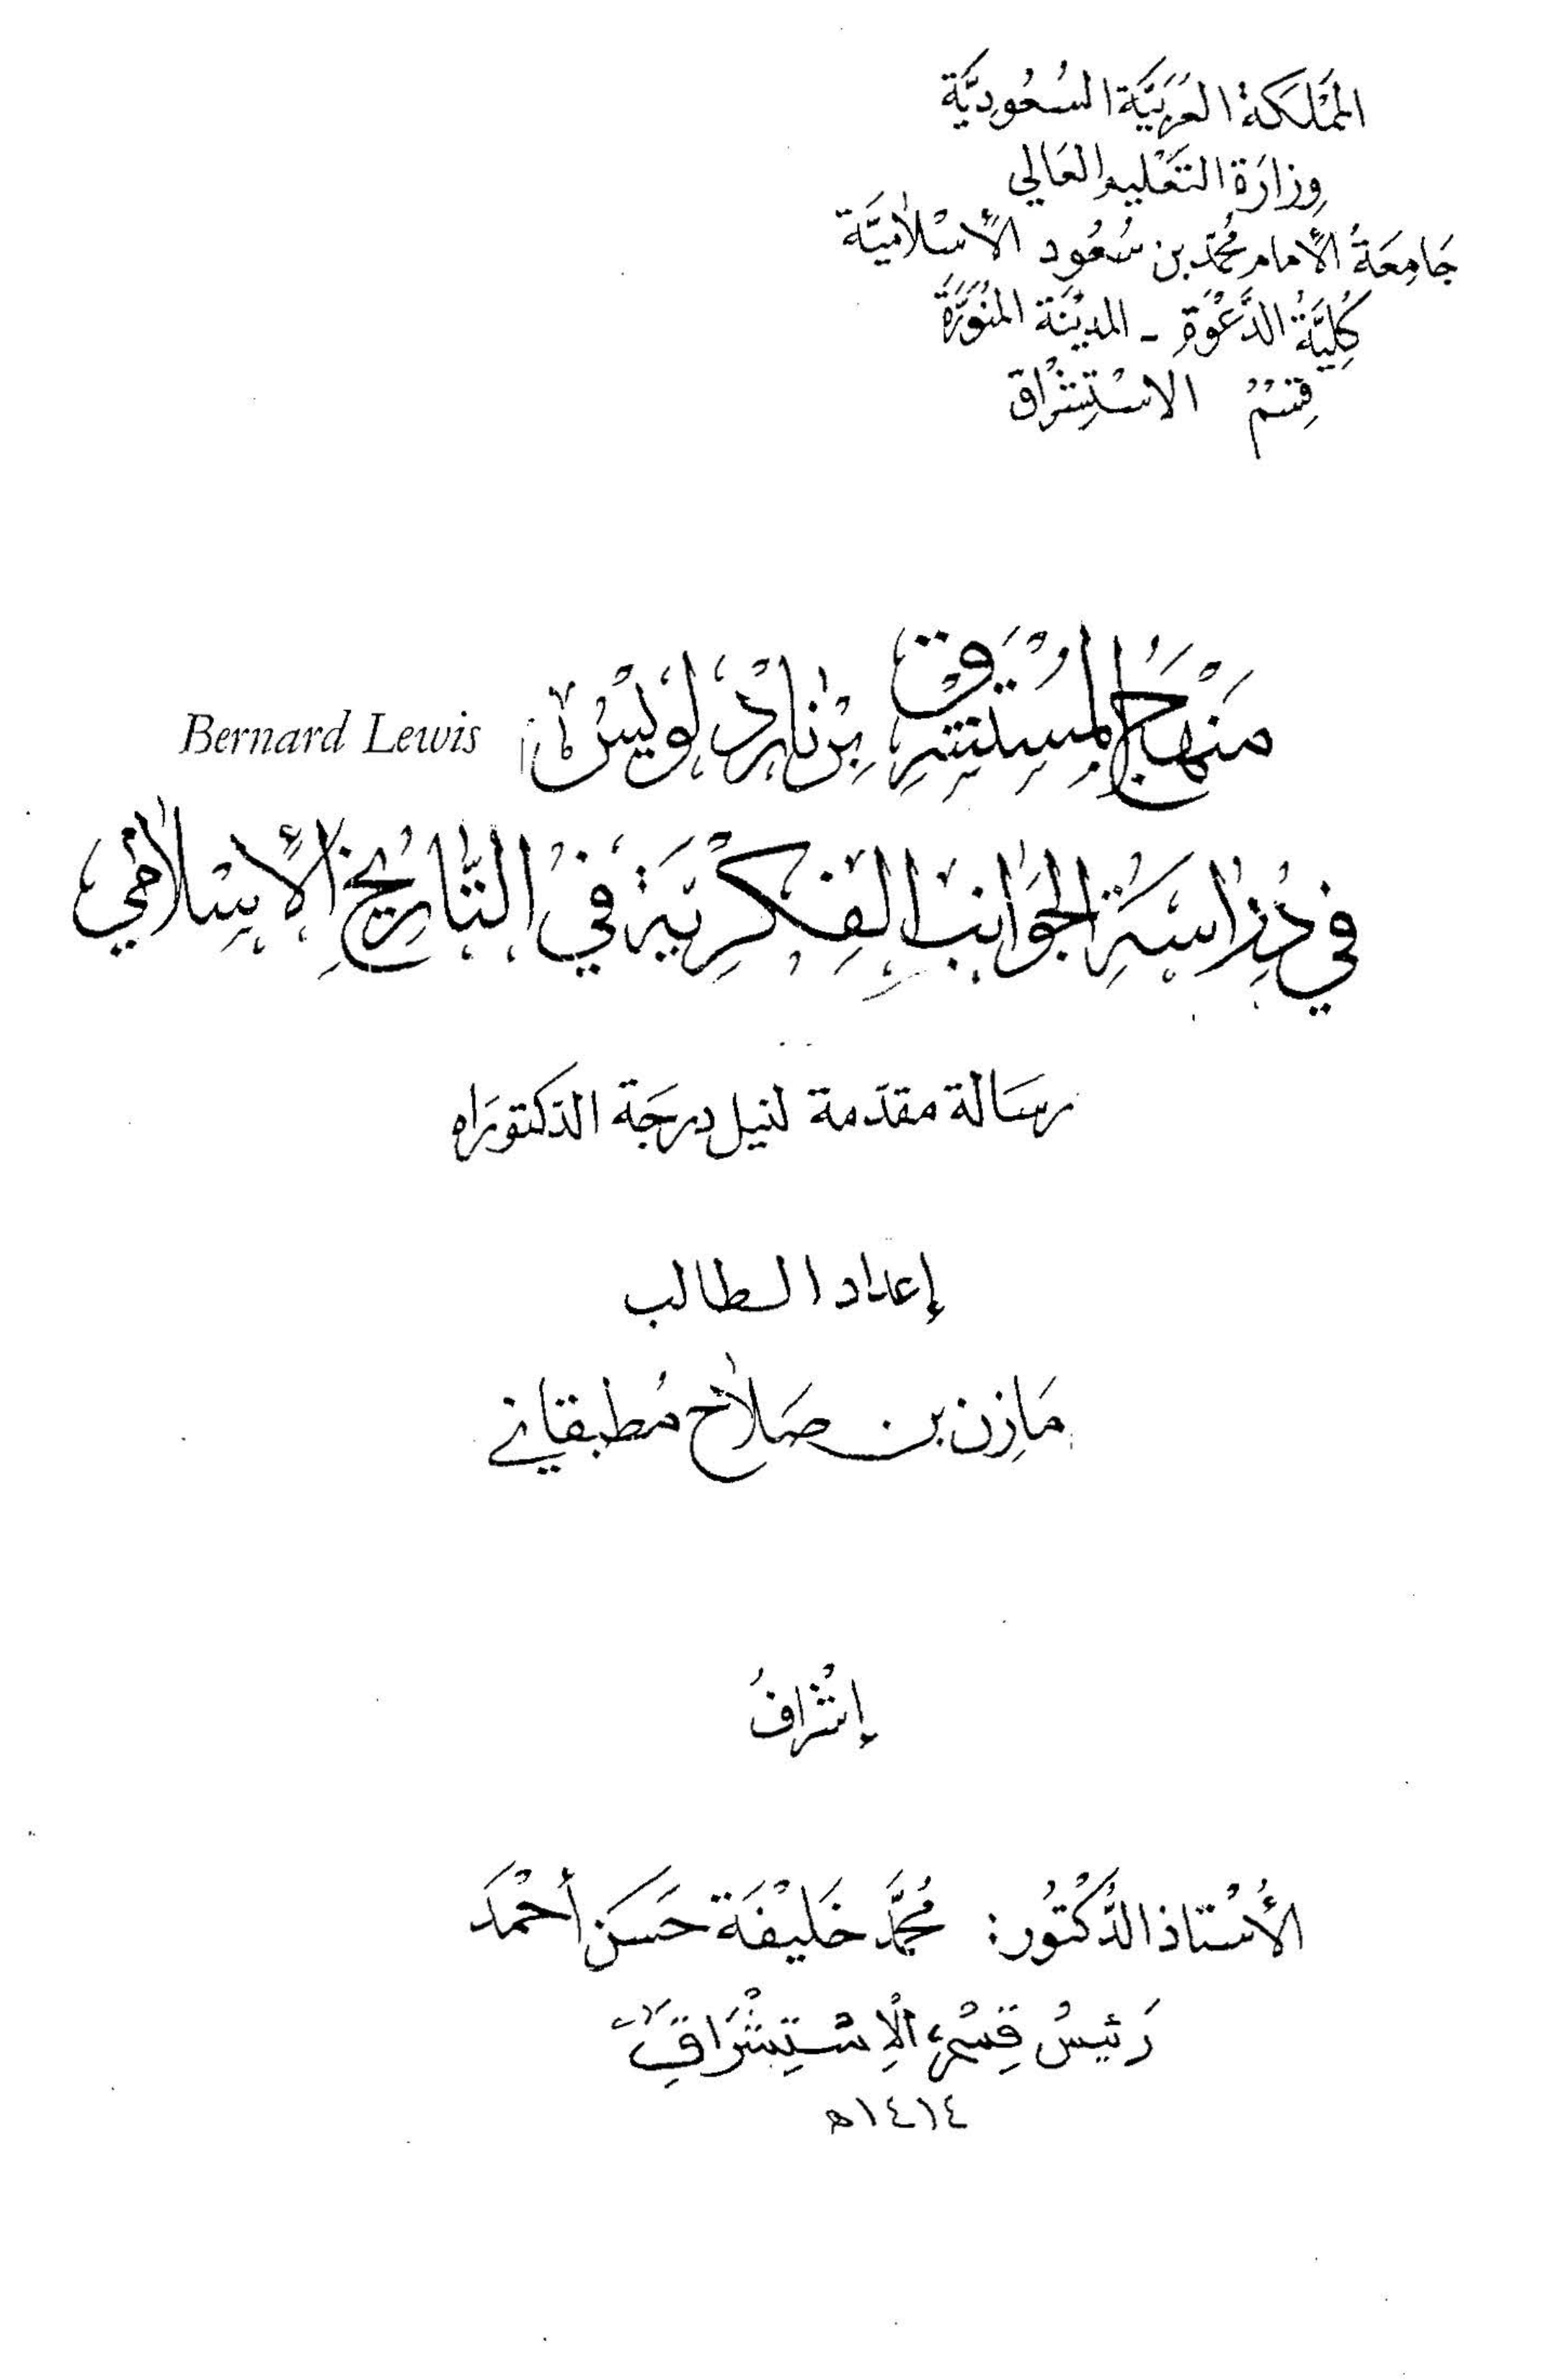 المملكة العربية السعودية
وزارة التعليم العالي
جامعة الأمام محمد بن سعود الأسلامية
كلية الدعوة - المدينة المنورة
قسم الاستشراق
منهج المستشرق برنارد لويس Bernard Lewis
في دراسة الجوانب الفكرية في التاريخ الأسلامي
رسالة مقدمة لنيل درجة الدكتوراه
إعداد الطالب
مازن بن صلاح مطبقاني
إشراف
الأستاذ الدكتور: محمد خليفة حسن أحمد
رئيس قسم الاستشراق
١٤١٤ه